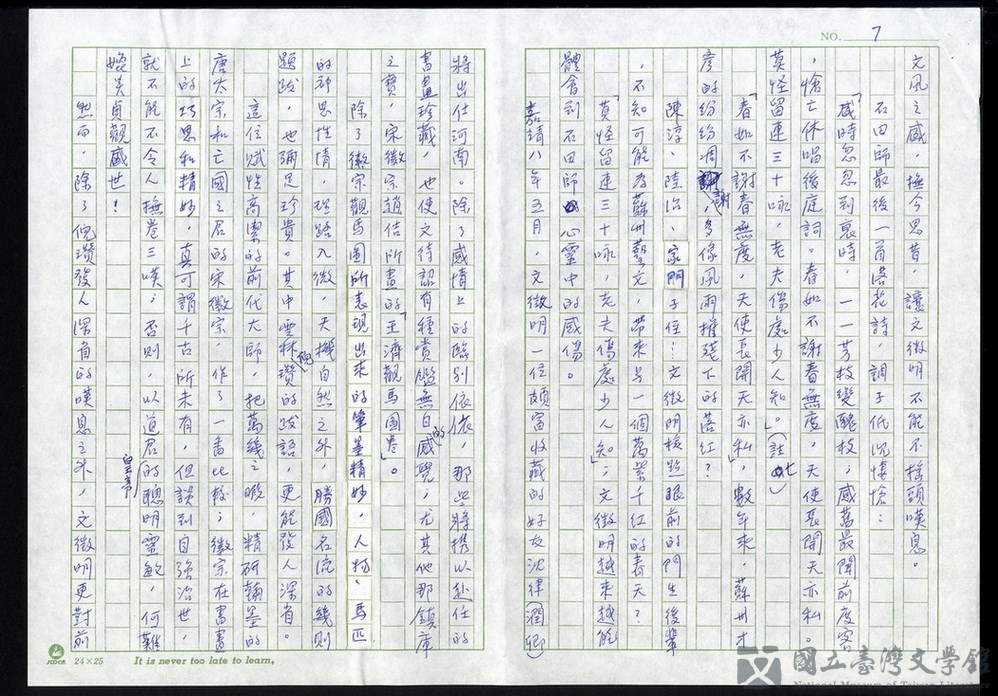 NO. 7
文風之盛，撫今思昔，讓文徵明不能不搖頭嘆息。
石田師最後一首落花詩，調子低沉悽愴：
「感時忽忽到衰時，一一芳枝變醜枝；感舊最閑前度客
，愴亡休唱後庭詞。春如不謝春無度，天使長開天亦私。
莫怪留連三十咏，老夫傷處少人知。」(註七)
「春如不謝春無度，天使長開天亦私」，數年來，蘇州才
彥的紛紛凋謝，多像風雨摧殘下的落紅？
陳淳、陸治、家門子侄…文徵明檢點眼前的門生後輩
，不知可能為蘇州藝文，帶來另一個萬紫千紅的春天？
「莫怪留連三十咏，老夫傷處少人知」；文徵明越來越能
體會到石田師心靈中的感傷。
嘉靖八年五月，文徵明一位頗富收藏的好友沈律(潤卿)
將出仕河南。除了感情上的臨別依依，那些將携以赴任的
書畫珍藏，也使文待詔有種賞鑑無自的感覺；尤其他那鎮庫
之寶，宋徽宗趙佶所畫的「王濟觀馬圖卷」。
除了徽宗觀馬圖所表現出來的筆墨精妙，人物、馬匹
的神思性情，理路入微，天機自然之外，勝國名流的幾則
題跋，也彌足珍貴。其中雲林倪瓚的跋語，更能發人深省。
這位賦性高潔的前代大師，把萬幾之暇，精研翰墨的
唐大宗和亡國之君的宋徽宗，作了一番比較；徽宗在書畫
上的巧思和精妙，真可謂千古所未有，但談到自強治世，
就不能不令人撫卷三嘆；否則，以道君皇帝的聰明靈敏，何難
媲美貞觀盛世！
然而，除了倪瓚發人深省的嘆息之外，文徵明更對前
24×25
It is never too late to learn.
國立臺灣文學館
National Museum of Taiwan Literature